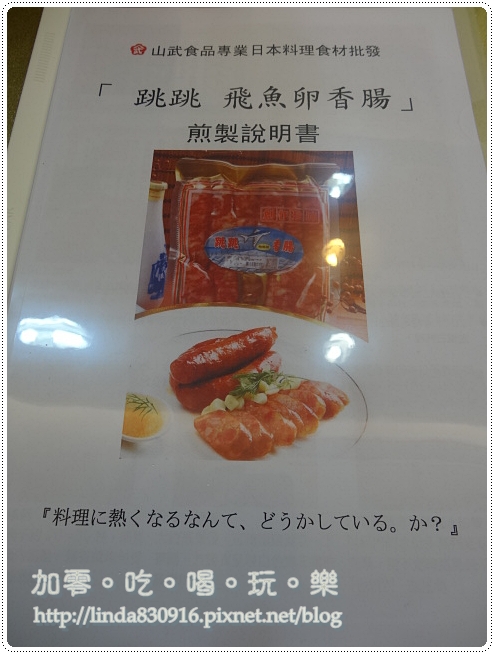 山武食品專業日本料理食材批發
「 跳跳 飛魚卵香腸」
煎製說明書
『料理に熱くなるなんて、どうかしている。か？』
加零。吃。喝。玩。樂
http://linda830916.pixnet.net/blog